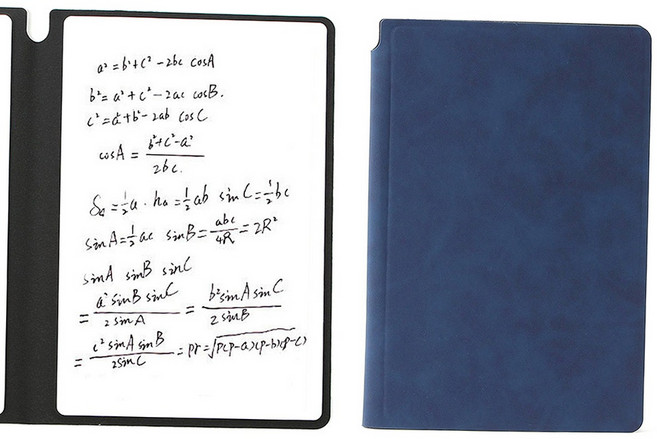 a² = b²+c² -2bc cosA
b² = a²+c² -2ac cosB.
c² = a²+b² -2ab cosC
cosA = (b²+c²-a²)/(2bc.)
S△ = ½a · hₐ = ½ab sinC = ½bc
sinA = ½ac sinB = abc/4R = 2R²
sinA sinB sinC
= (a² sinB sinC)/(2 sinA) = (b² sinA sinC)/(2 sinB)
= (c² sinA sinB)/(2sinC) = pr = √(p(p-a)(p-b)(p-c)